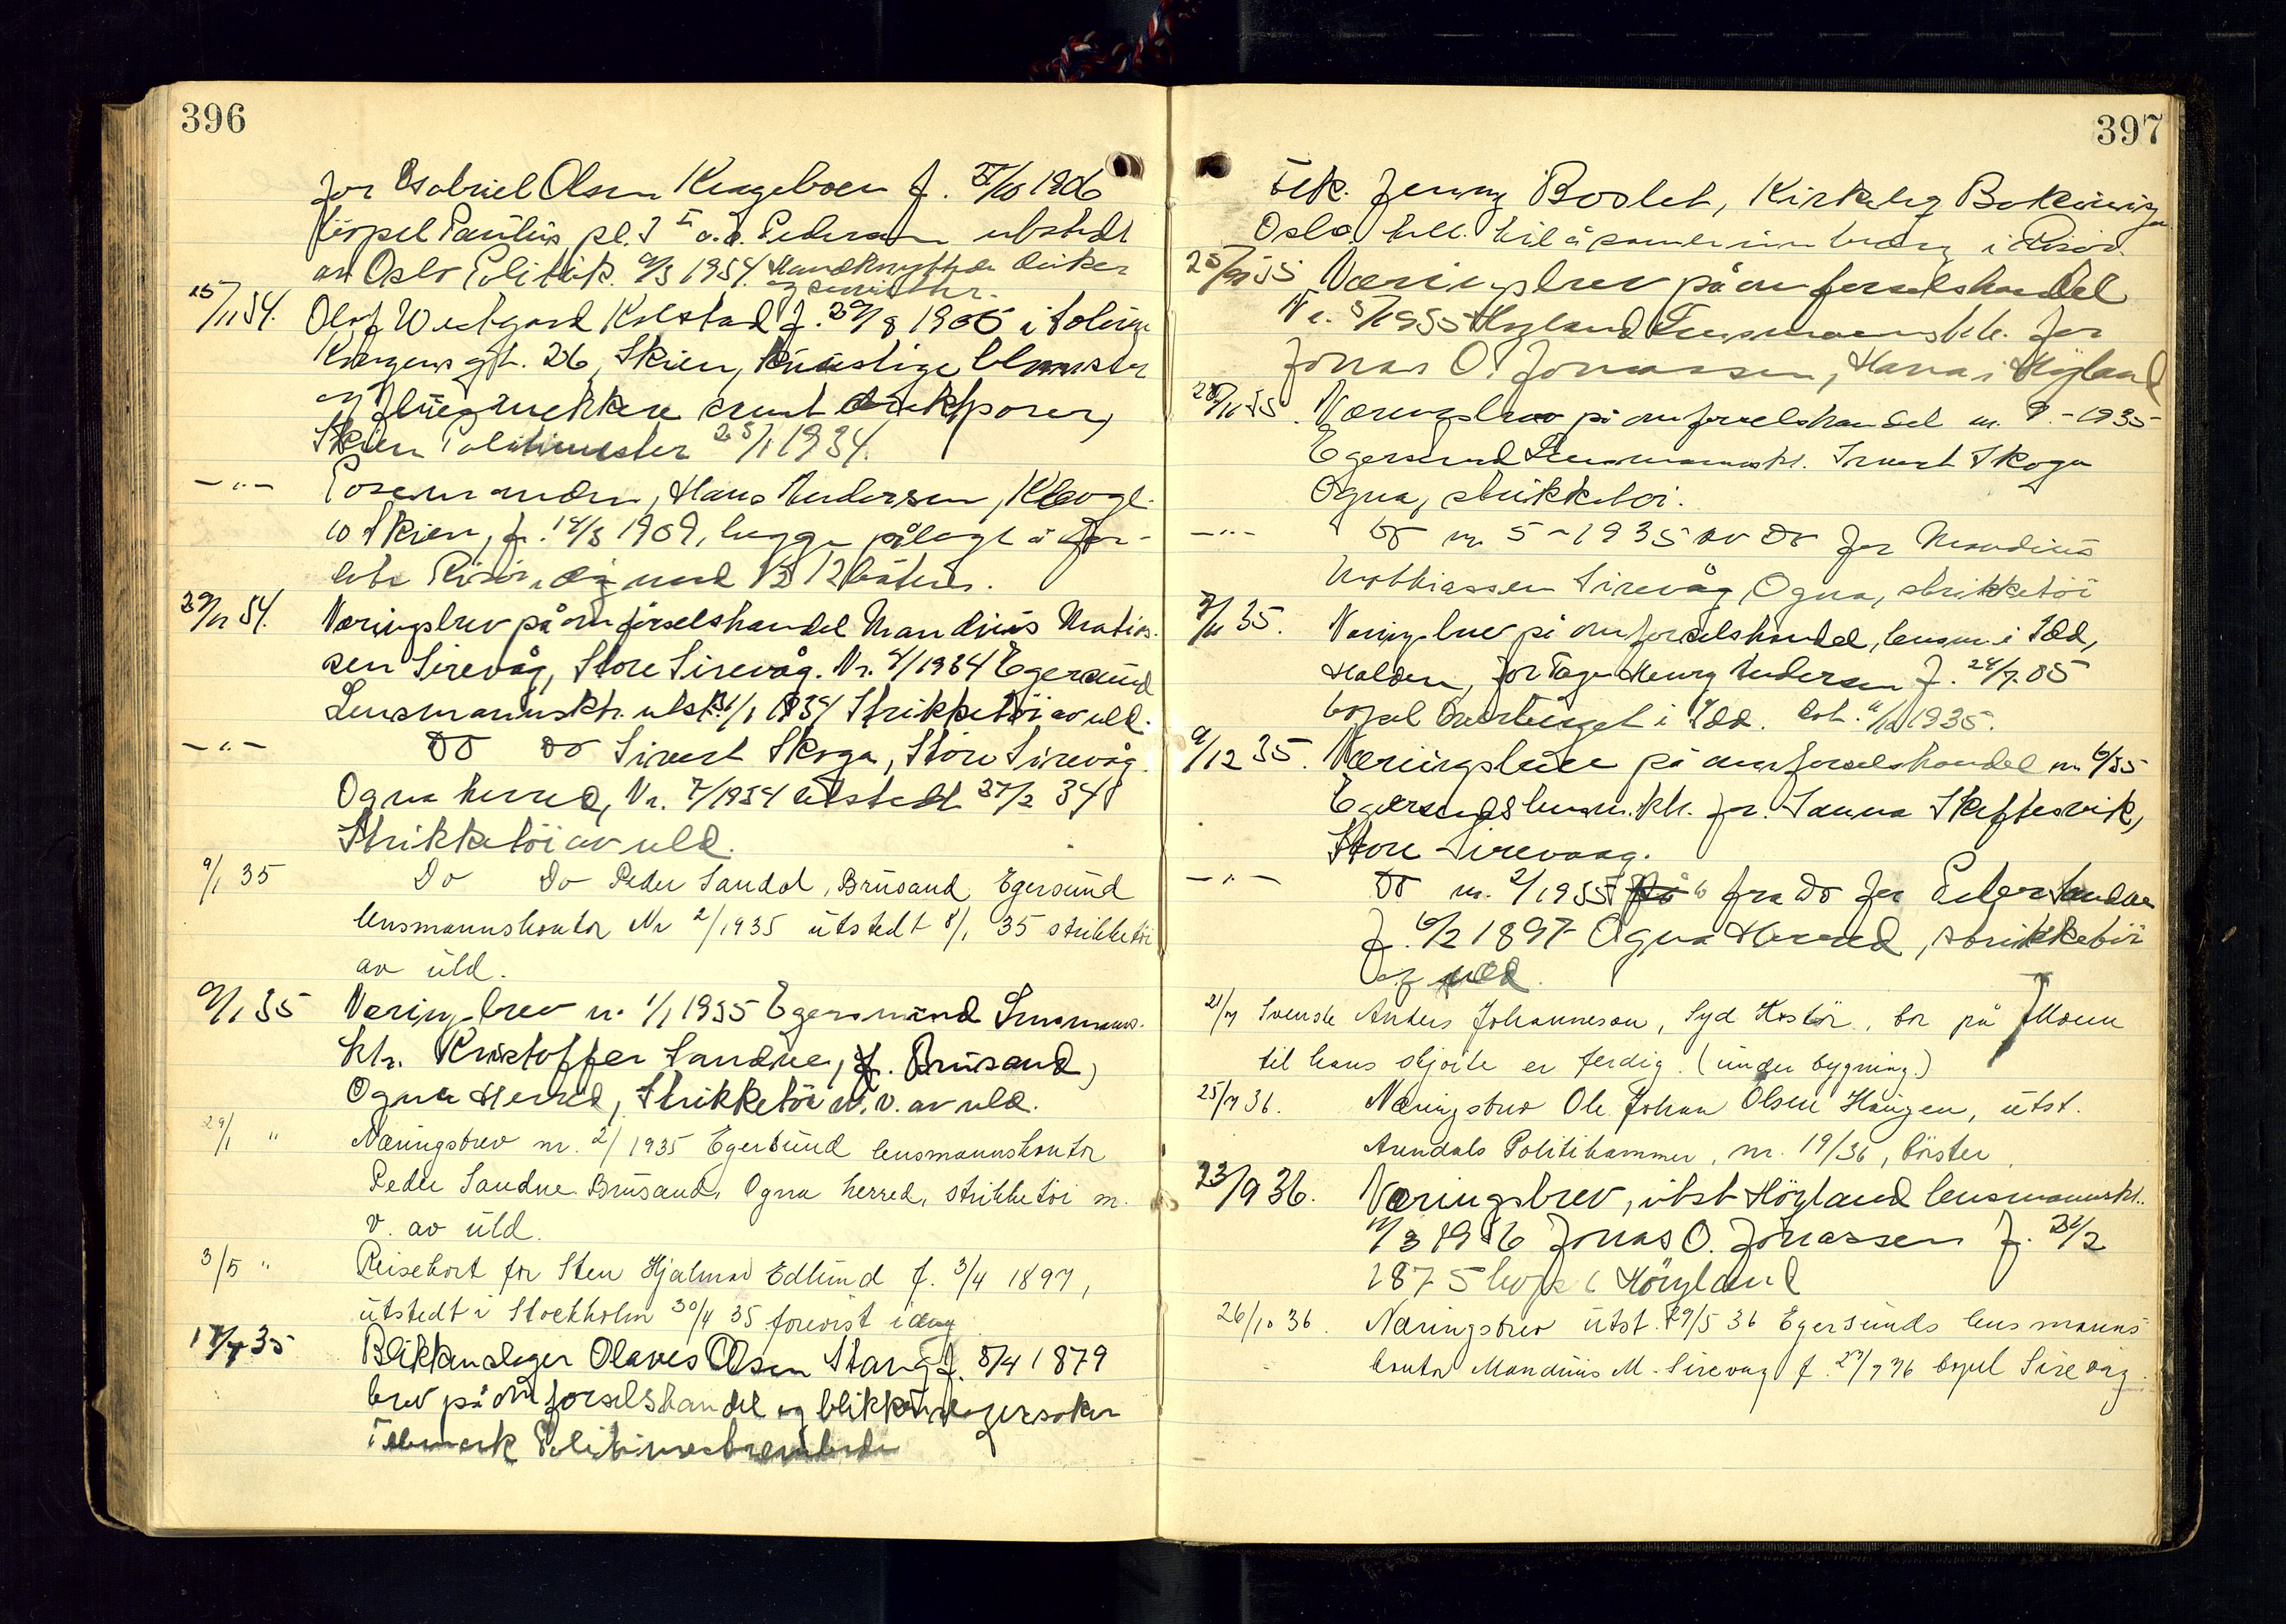 396
for Gabriel Olsen f. 1906
Paulus pl. 5 I o.g. Pedersen utstedt
av Oslo Politik. 9/3 1934. Handknyttede duker
og
25/11 34. Olof Westgard Kolstad f. 29/8 1905 i Solum
gt. 26, Skien, kunstige blomster
og samt
Skien Politimester 25/1 1934.
— " — Hans Andersen,
10 Skien, f. 14/3 1909, begge pålagt å for-
late Risør
29/11 34. Næringsbrev på omførselshandel Mandius Matias-
sen Sirevåg, Store Sirevåg. Nr. 4/1934 Egersund
Lensmannsktr. utst. 31/1 1934 Strikketöi av uld.
— " — Do Do Sivert Skoga, Store Sirevåg
Ogna herred, Nr. 7/1934 utstedt 27/2 34
Strikketöi av uld.
9/1 35 Do Do Peder Sandal, Brusand, Egersund
lensmannskontor Nr 2/1935 utstedt 8/1 35 strikketöi
av uld.
9/1 35 Næringsbrev nr. 1/1935 Egersund Lensmanns-
ktr. Kristoffer Sandve, f. Brusand,
Ogna Herred, Strikketöi m.v. av uld.
29/1 " Næringsbrev nr. 2/1935 Egersund lensmannskontor
Peder Sandve Brusand, Ogna herred, strikketöi m.
v. av uld.
3/5 " Reisekort for Sten Hjalmar Edlund f. 3/4 1897,
utstedt i Stockholm 30/4 35 forevist idag
17/7 35 Blikkenslager Olaves Olsen Stang f. 8/4 1879
brev på omforselshandel og blikkenslagersaker
Telemark
397
Frk. Jenny Boslet, Kirkelig
Oslo, till. til å samle inn i Risör.
35 Næringsbrev på omforselshandel
Nr. 5/1935 Høyland Lensmannsktr. for
Jonas O. Jonassen, Hana i Höyland
28/11 35. Næringsbrev på omforselshandel nr. 9 - 1935
Egersund Lensmannsktr. Sivert Skoga
Ogna, strikketöi.
— " — Do nr. 5 - 1935 av Do for Mandius
Matthiassen Sirevåg, Ogna, strikketöi
35. Næringsbrev på omforselshandel, lensm. i Idd,
Halden, for Tage Henry Andersen f. 24/7 05
bopel i Idd. 1935.
9/12 35. Næringsbrev på omforselshandel nr. 6/35
Egersunds lensm.ktr. for Sanna Skeftesvik,
Store Sirevaag.
— " — Do nr. 2/1935 fra Do for Peder Sandve
f. 6/2 1897 Ogna Herred, strikketöi
af uld.
21/7 Svenske Anders Johanneson, Syd Koster, bor på Moen
til hans skjöite er ferdig. (under bygning.)
25/7 36. Næringsbrev Ole Johan Olsen Haugen, utst.
Arendals Politikammer, nr. 19/36, börster.
23/9 36. Næringsbrev, utst Höyland lensmannsktr.
11/3 1936 Jonas O. Jonassen f. 21/2
1875 bopel i Höyland
26/10 36. Næringsbrev utst. 29/5 36 Egersunds lensmanns
kontor Mandius M. Sirevåg f. 27/7 96 bopel Sirevåg.